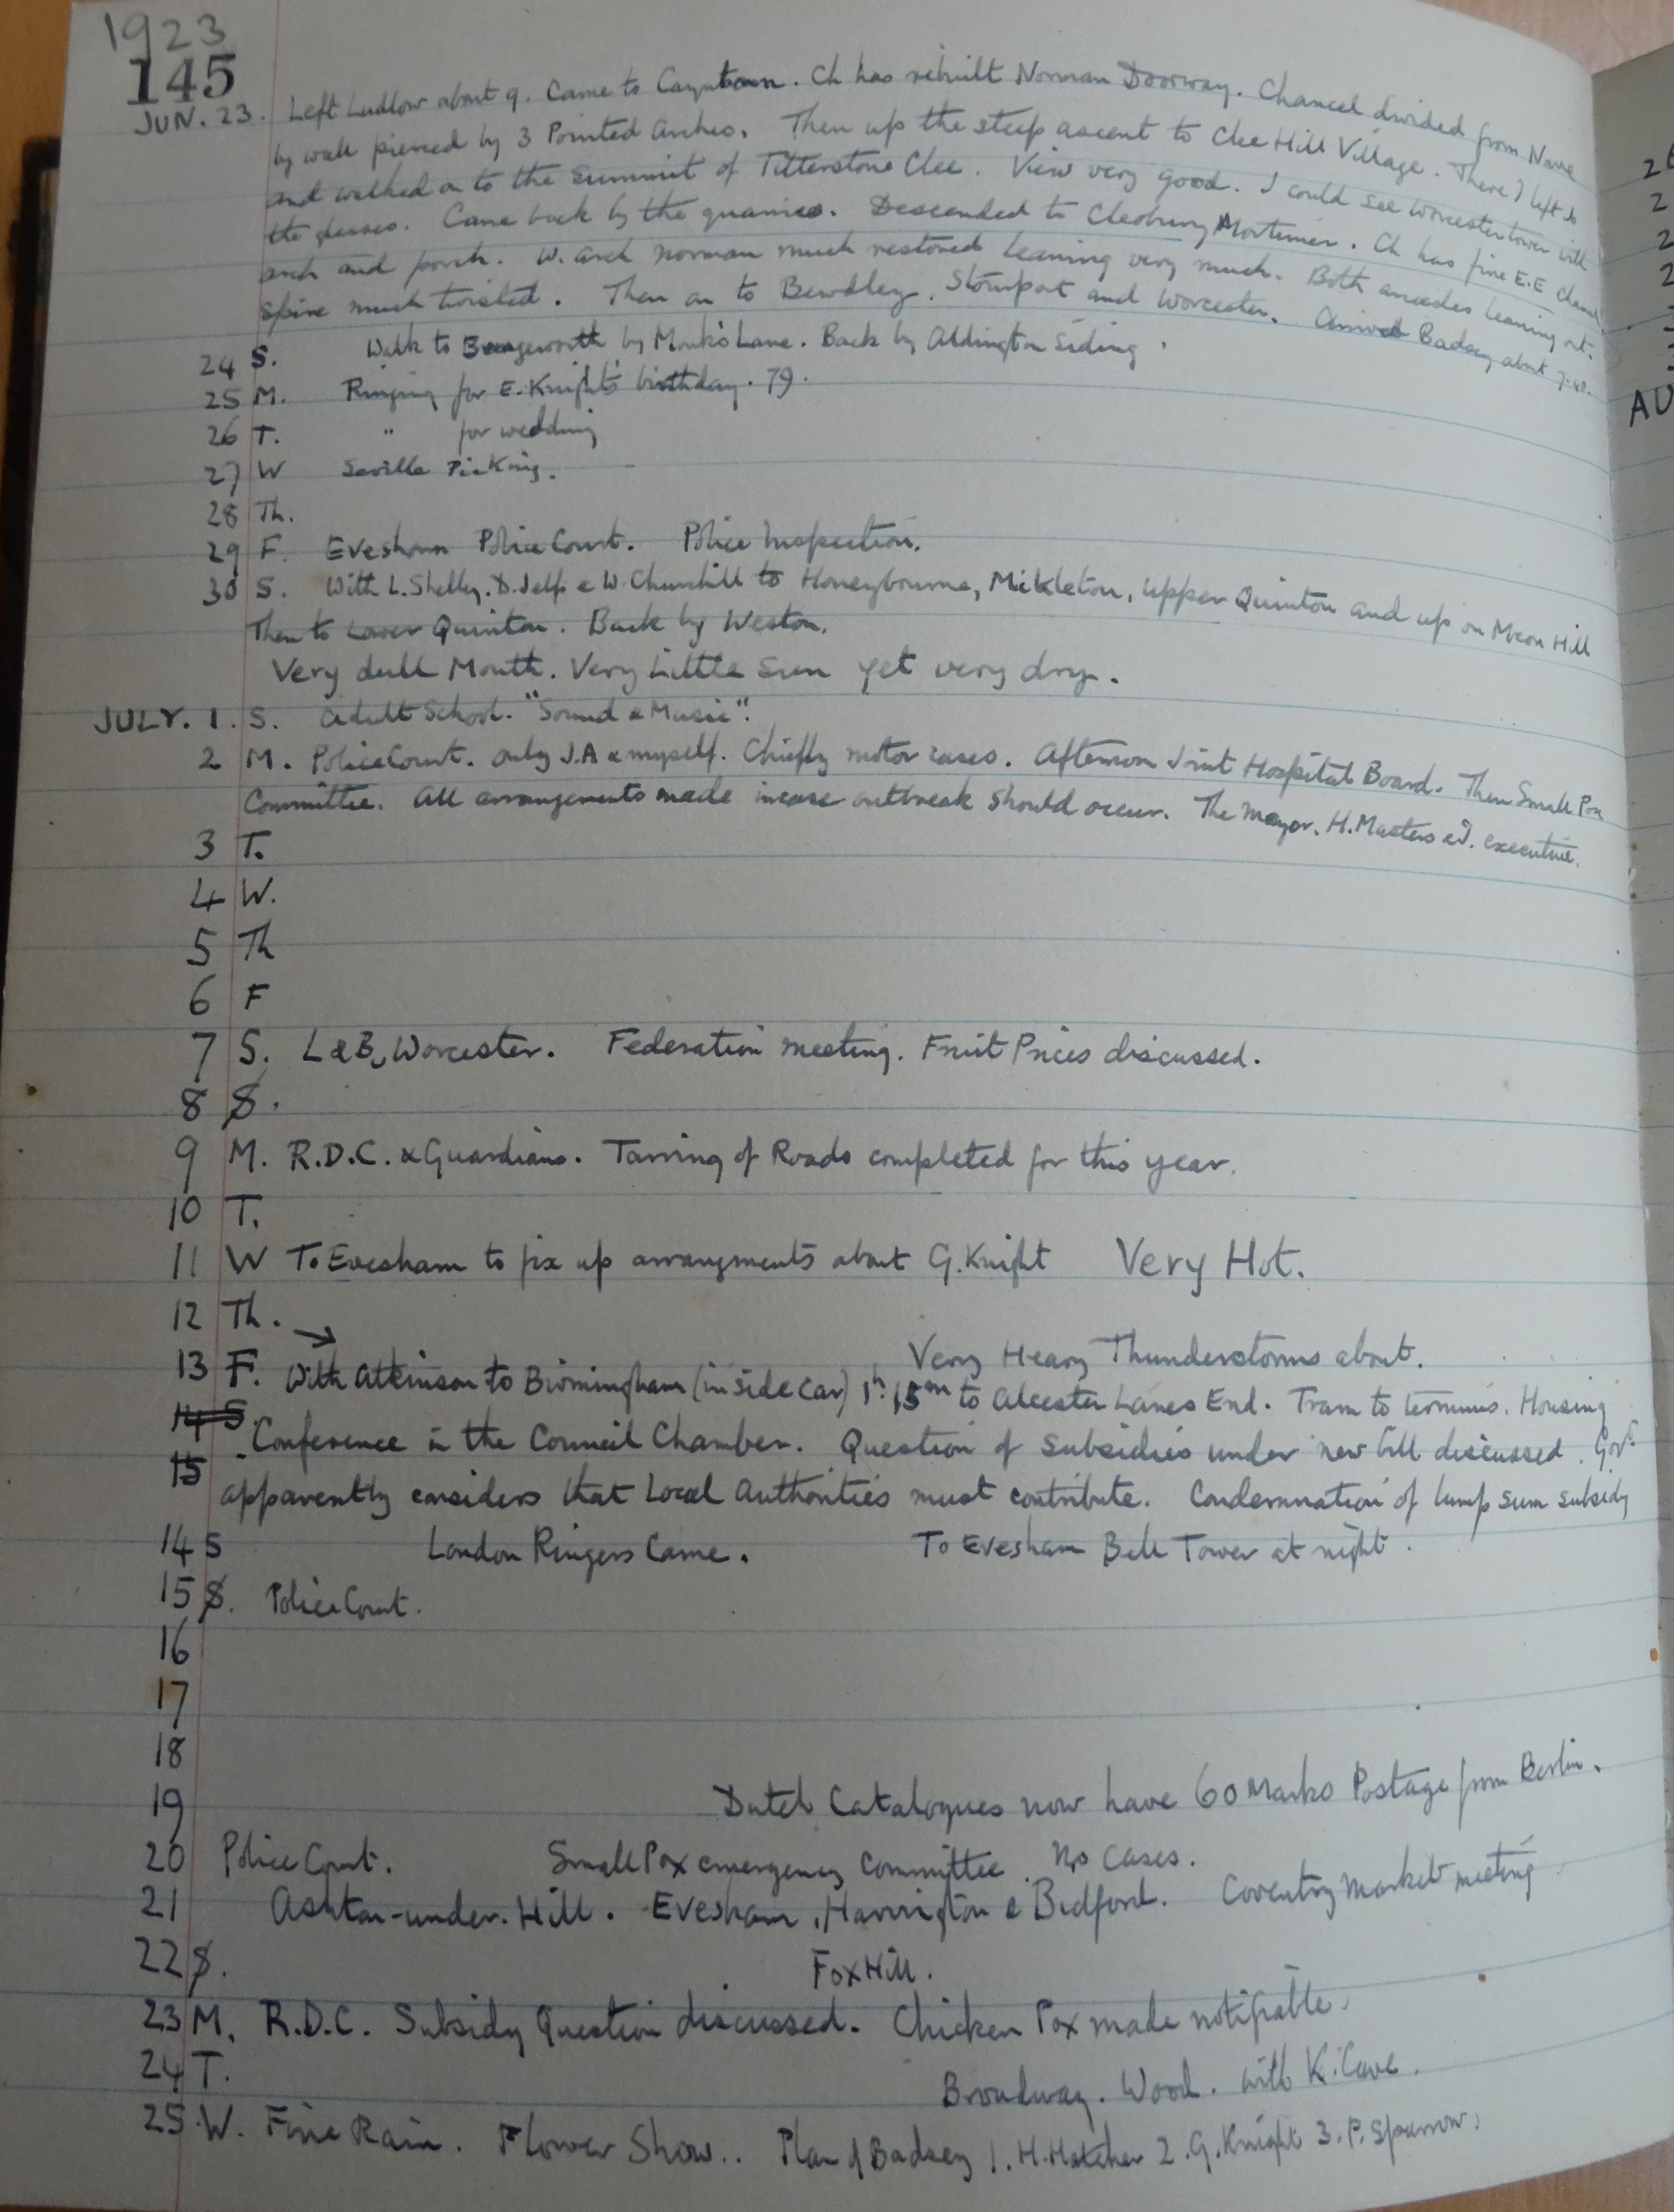 1923
145
JUN. 23. Left Ludlow about 9. Came to Caynham. Ch has rebuilt Norman Doorway. Chancel divided from Nave
by wall pierced by 3 Pointed Arches. Then up the steep ascent to Clee Hill Village. There I left
and walked on to the Summit of Titterstone Clee. View very good. I could see Worcester tower with
the glasses. Came back by the quarries. Descended to Cleobury Mortimer. Ch has fine E.E chancel
arch and porch. W. arch norman much restored leaning very much. Both arcades leaning out.
Spire much twisted. Then on to Bewdley. Stourport and Worcester. Arrived Badsey about 7.40.
24 S. Walk to Bengeworth by Monk's Lane. Back by Aldington Siding.
25 M. Ringing for E. Knight's birthday. 79.
26 T. " for wedding
27 W Seville Picking.
28 Th.
29 F. Evesham Police Court. Police Inspection.
30 S. With L. Shelley. D. Jelfs & W. Churchill to Honeybourne, Mikleton, Upper Quinton and up on Meon Hill
Then to Lower Quinton. Back by Weston.
Very dull Month. Very Little Sun yet very dry.
JULY. 1. S. Adult School. "Sound & Music".
2 M. Police Court. only J.A & myself. Chiefly motor cases. Afternoon Joint Hospital Board. Then Small Pox
Committee. All arrangements made incase outbreak should occur. The Mayor. H. Masters & I. executive.
3 T.
4 W.
5 Th
6 F
7 S. L & B, Worcester. Federation meeting. Fruit Prices discussed.
8 S.
9 M. R.D.C. & Guardians. Tarring of Roads completed for this year.
10 T.
11 W To Evesham to fix up arrangments about G. Knight Very Hot.
12 Th. →
Very Heavy Thunderstorms about.
13 F. With Atkinson to Birmingham (in side car) 1h. 15m to Alcester Lanes End. Tram to terminus. Housing
14 S. Conference in the Council Chamber. Question of Subsidies under new bill discussed. Govt
15 apparently considers that Local Authorities must contribute. Condemnation of lump sum subsidy
14 S London Ringers Came. To Evesham Bell Tower at night.
15 S. Police Court.
16
17
18
19 Dutch Catalogues now have 60 Marks Postage from Berlin.
20 Police Court. Small Pox emergency Committee. No Cases.
21 Ashton-under-Hill. Evesham, Harvington & Bidford. Coventry Market meeting
22 S. Fox Hill.
23 M. R.D.C. Subsidy Question discussed. Chicken Pox made notifiable.
24 T. Broadway. Wood. with K. Cave.
25 W. Fine Rain. Flower Show.. Plan of Badsey 1. H. Hatcher 2. G. Knight 3. P. Sparrow.